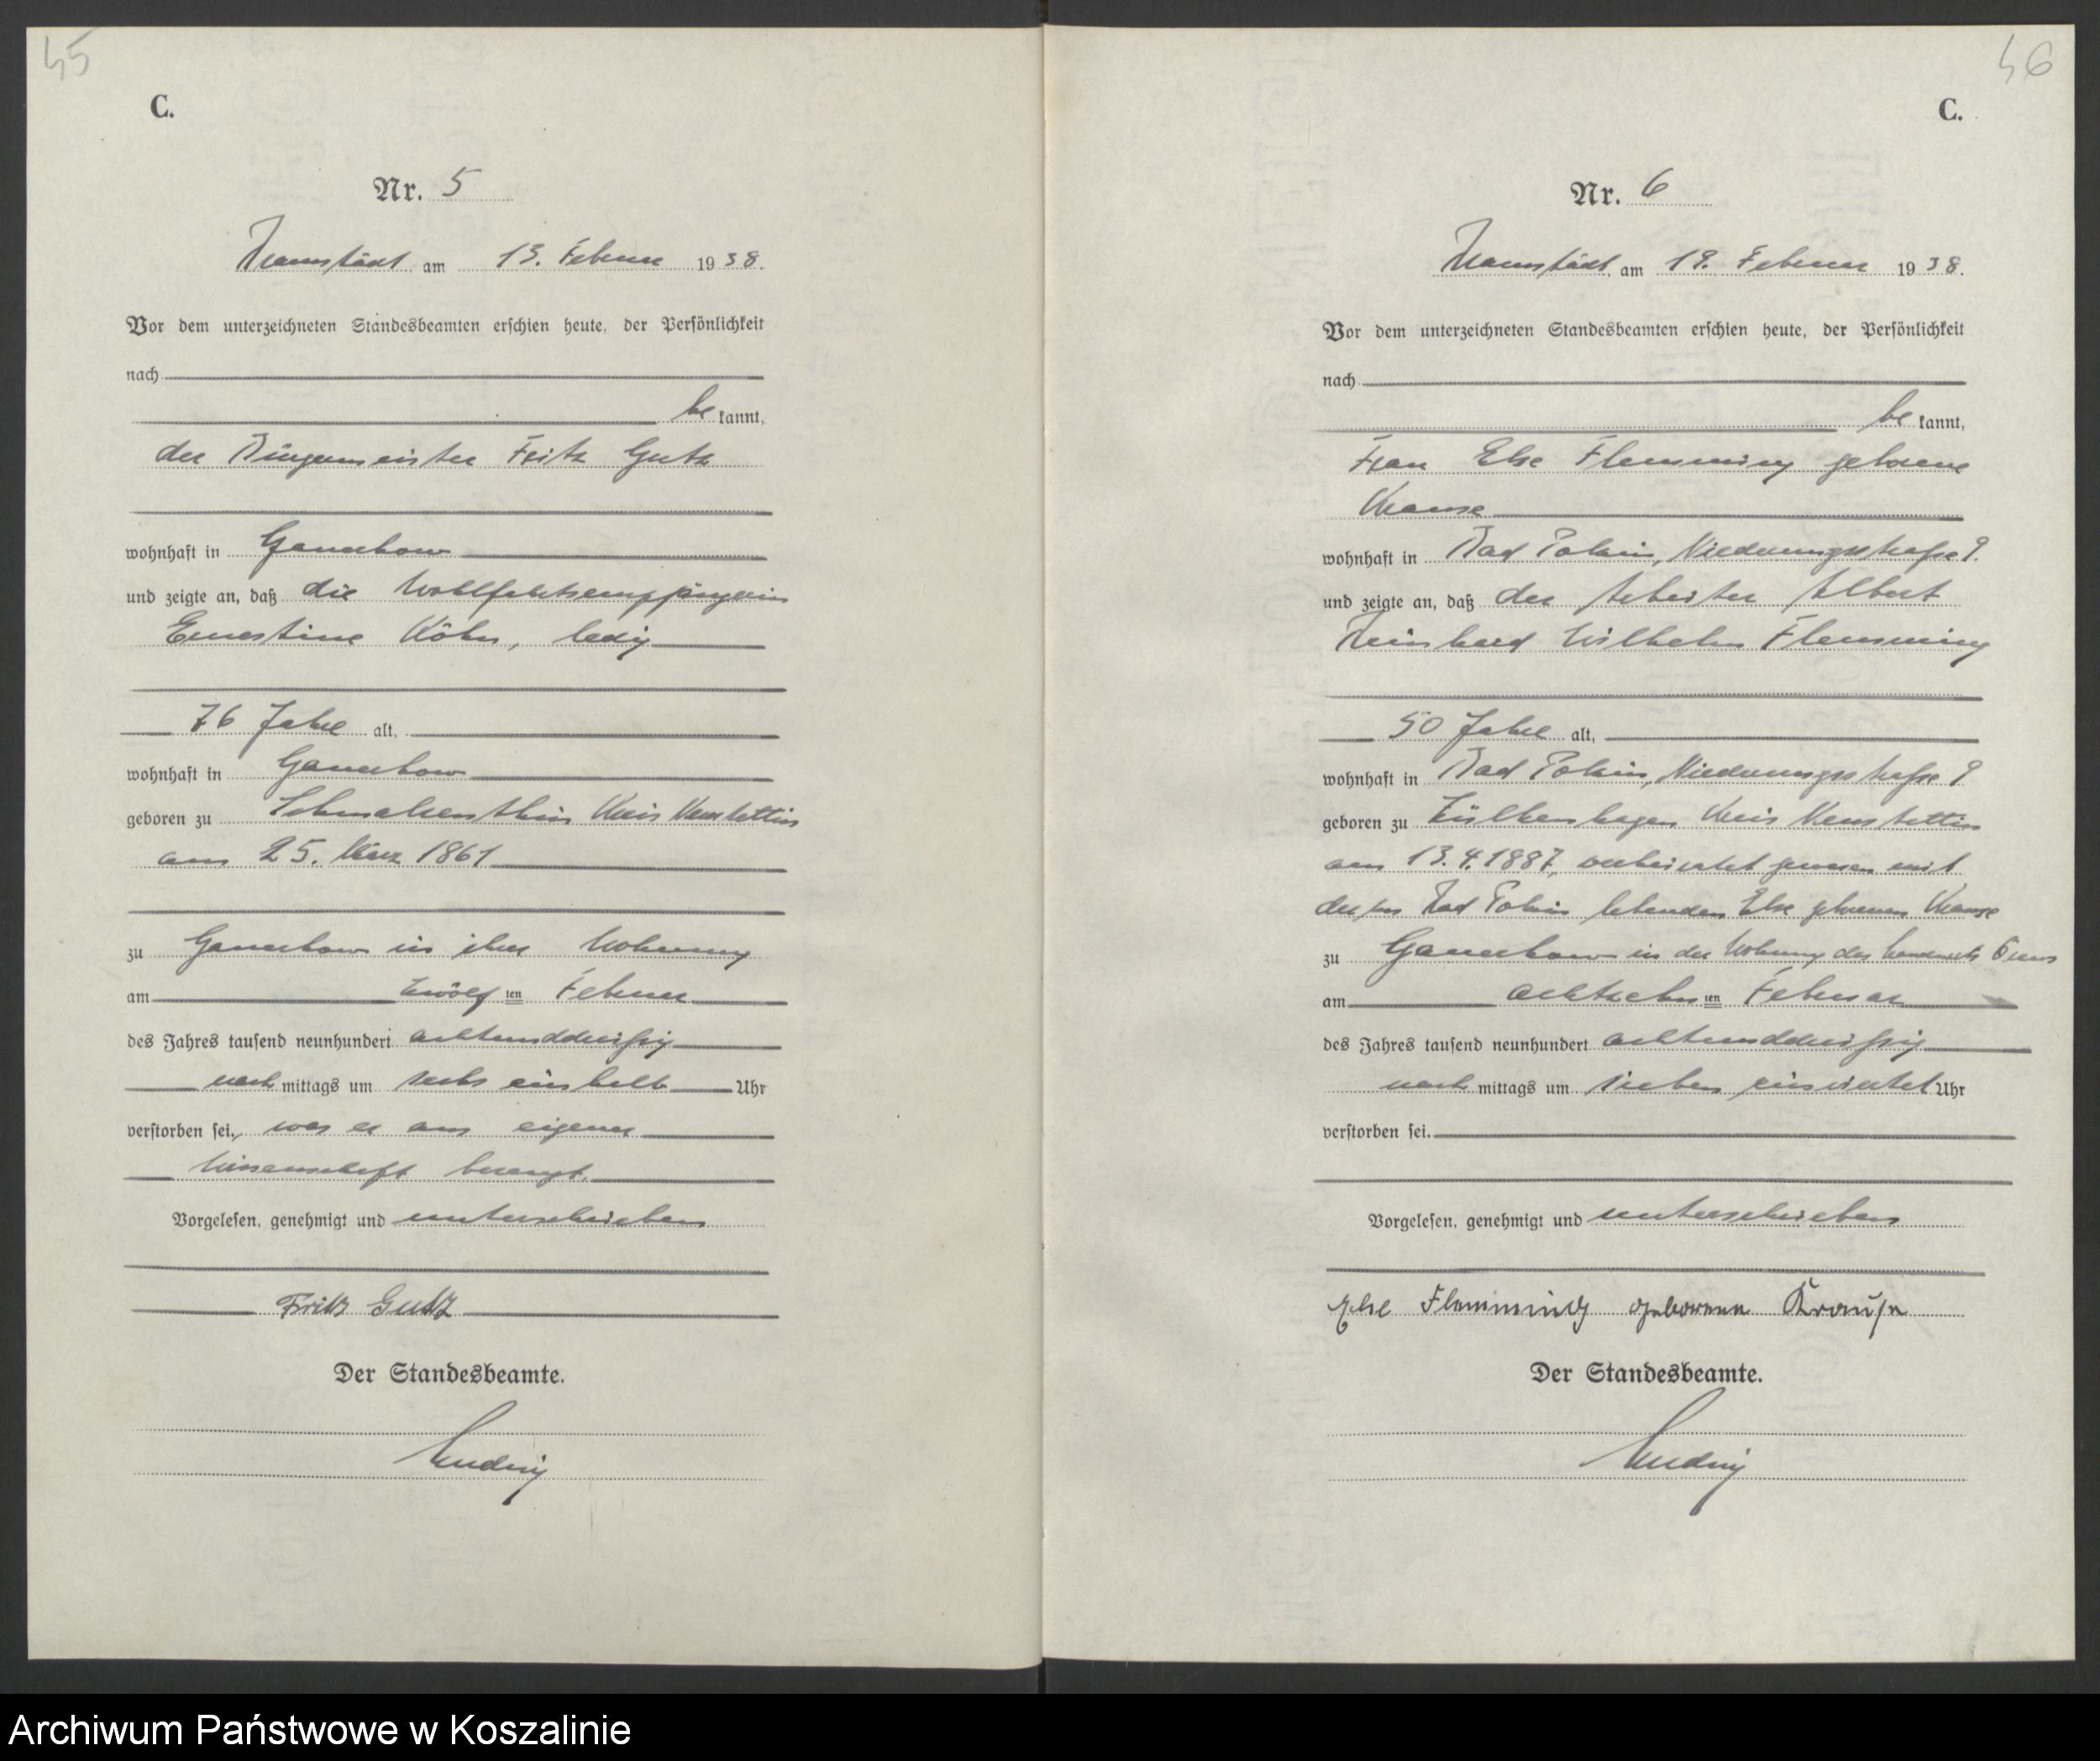 45
C.
Nr. 5
am 13. Februar 1938.
Vor dem unterzeichneten Standesbeamten erschien heute, der Persönlichkeit
nach
be kannt,
der Bürgermeister Fritz Gutz
wohnhaft in Ganerkow
und zeigte an, daß die Wohlfahrtsempfängerin
Ernestine Köhn, ledig
76 Jahre alt,
wohnhaft in Ganerkow
geboren zu Schmalzenthin Kreis Neustettin
am 25. März 1861
zu Ganerkow in ihrer Wohnung
am zwölf ten Februar
des Jahres tausend neunhundert achtunddreißig
nach mittags um sechs einhalb Uhr
verstorben sei, was er aus eigener
Wissenschaft bezeugt.
Vorgelesen, genehmigt und unterschrieben
Fritz Gutz
Der Standesbeamte.
46
C.
Nr. 6
am 19. Februar 1938.
Vor dem unterzeichneten Standesbeamten erschien heute, der Persönlichkeit
nach
be kannt,
Frau Else Flemming geborene
Krause
wohnhaft in Bad Polzin, Niederungsstraße 9.
und zeigte an, daß der Arbeiter Albert
Reinhard Wilhelm Flemming
50 Jahre alt,
wohnhaft in Bad Polzin, Niederungsstraße 9
geboren zu Zülkenhagen Kreis Neustettin
am 13.4.1887, verheiratet gewesen mit
der in Bad Polzin lebenden Else geborenen Krause
zu Ganerkow in der Wohnung des Landwirts
am achtzehn ten Februar
des Jahres tausend neunhundert achtunddreißig
nach mittags um sieben einviertel Uhr
verstorben sei.
Vorgelesen, genehmigt und unterschrieben
Else Flemming geborene Krause
Der Standesbeamte.
Archiwum Państwowe w Koszalinie